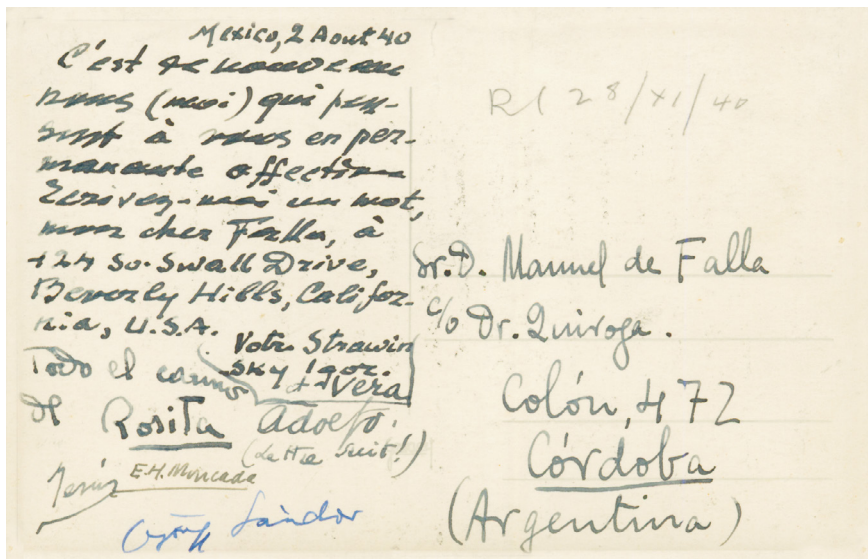 Mexico, 2 Aout 40
C'est de nouveau
nous (moi) qui pen-
sent à vous en per-
manante affection
Ecrivez-moi un mot,
mon cher Falla, à
124 So. Swall Drive,
Beverly Hills, Califor-
nia, U.S.A.
Votre Strawin
sky Igor.
+ Vera
Todo el cariño
de Rosita Adolfo.
(Lettre suit!)
Jesús E.H. Moncada
Sándor
R( 28/XI/40
Sr. D. Manuel de Falla
c/o Dr. Quiroga.
Colón, 472
Córdoba
(Argentina)